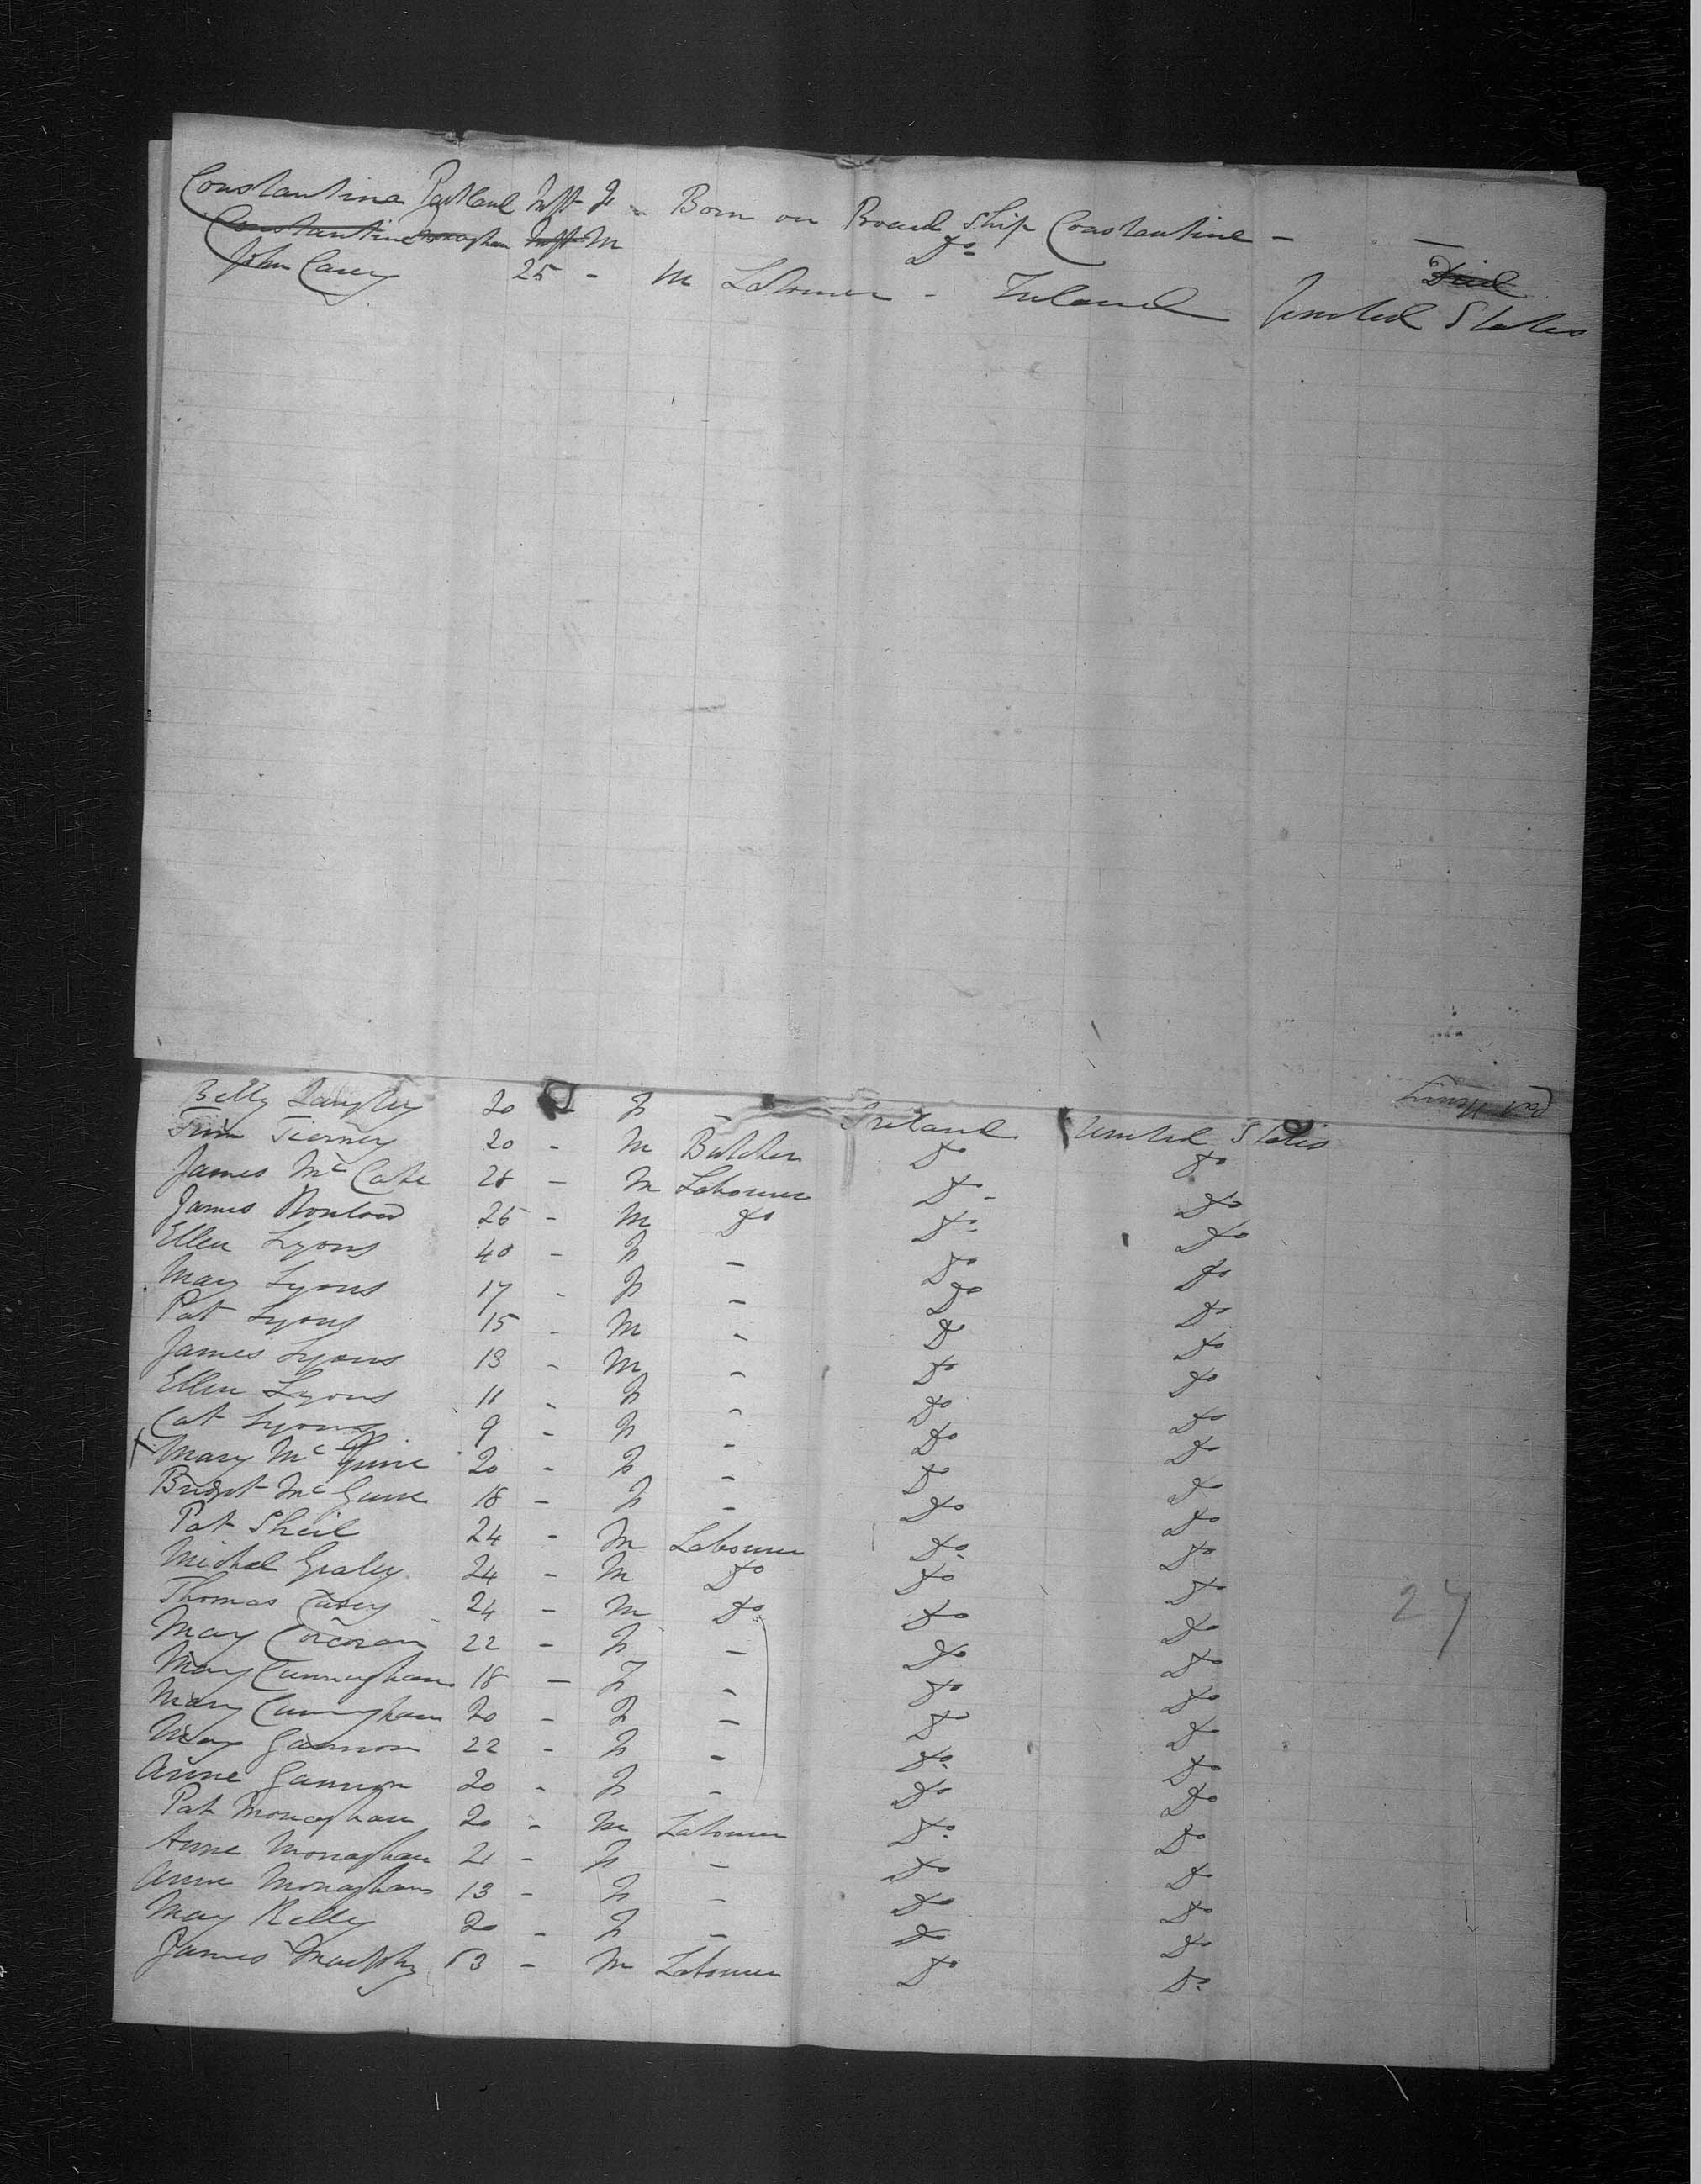 Constantina Partland Inft F - Born on Board Ship Constantine - -
Constantine Monaghan Inft M Do Died
John Carey 25 - M Labourer - Ireland United States
Betty 20 - F - Ireland United States
Tim Tierney 20 - M Butcher Do Do
James McCabe 28 - M Labourer Do - Do
James 25 - M Do Do Do
Ellen Lyons 40 - F - Do Do
Mary Lyons 17 - F - Do Do
Pat Lyons 15 - M - Do Do
James Lyons 13 - M - Do Do
Ellen Lyons 11 - F - Do Do
Cat Lyons 9 - F - Do Do
x Mary Mc 20 - F - Do Do
Bridgt Mc Guire 18 - F - Do Do
Pat Sheil 24 - M Labourer Do Do
Michal Graley 24 - M Do Do Do
Thomas Casey 24 - M Do Do Do
Mary Corcoran 22 - F - Do Do
Mary Cunningham 18 - F - Do Do
Mary Cunningham 20 - F - Do Do
Mary Gannon 22 - F - Do Do
Anne Gannon 20 - F - Do Do
Pat Monaghan 20 - M Labourer Do Do
Anne Monaghan 21 - F - Do Do
Anne Monaghan 13 - F - Do Do
Mary Kelly 20 - F - Do Do
James Murphy 53 - M Labourer Do Do
27